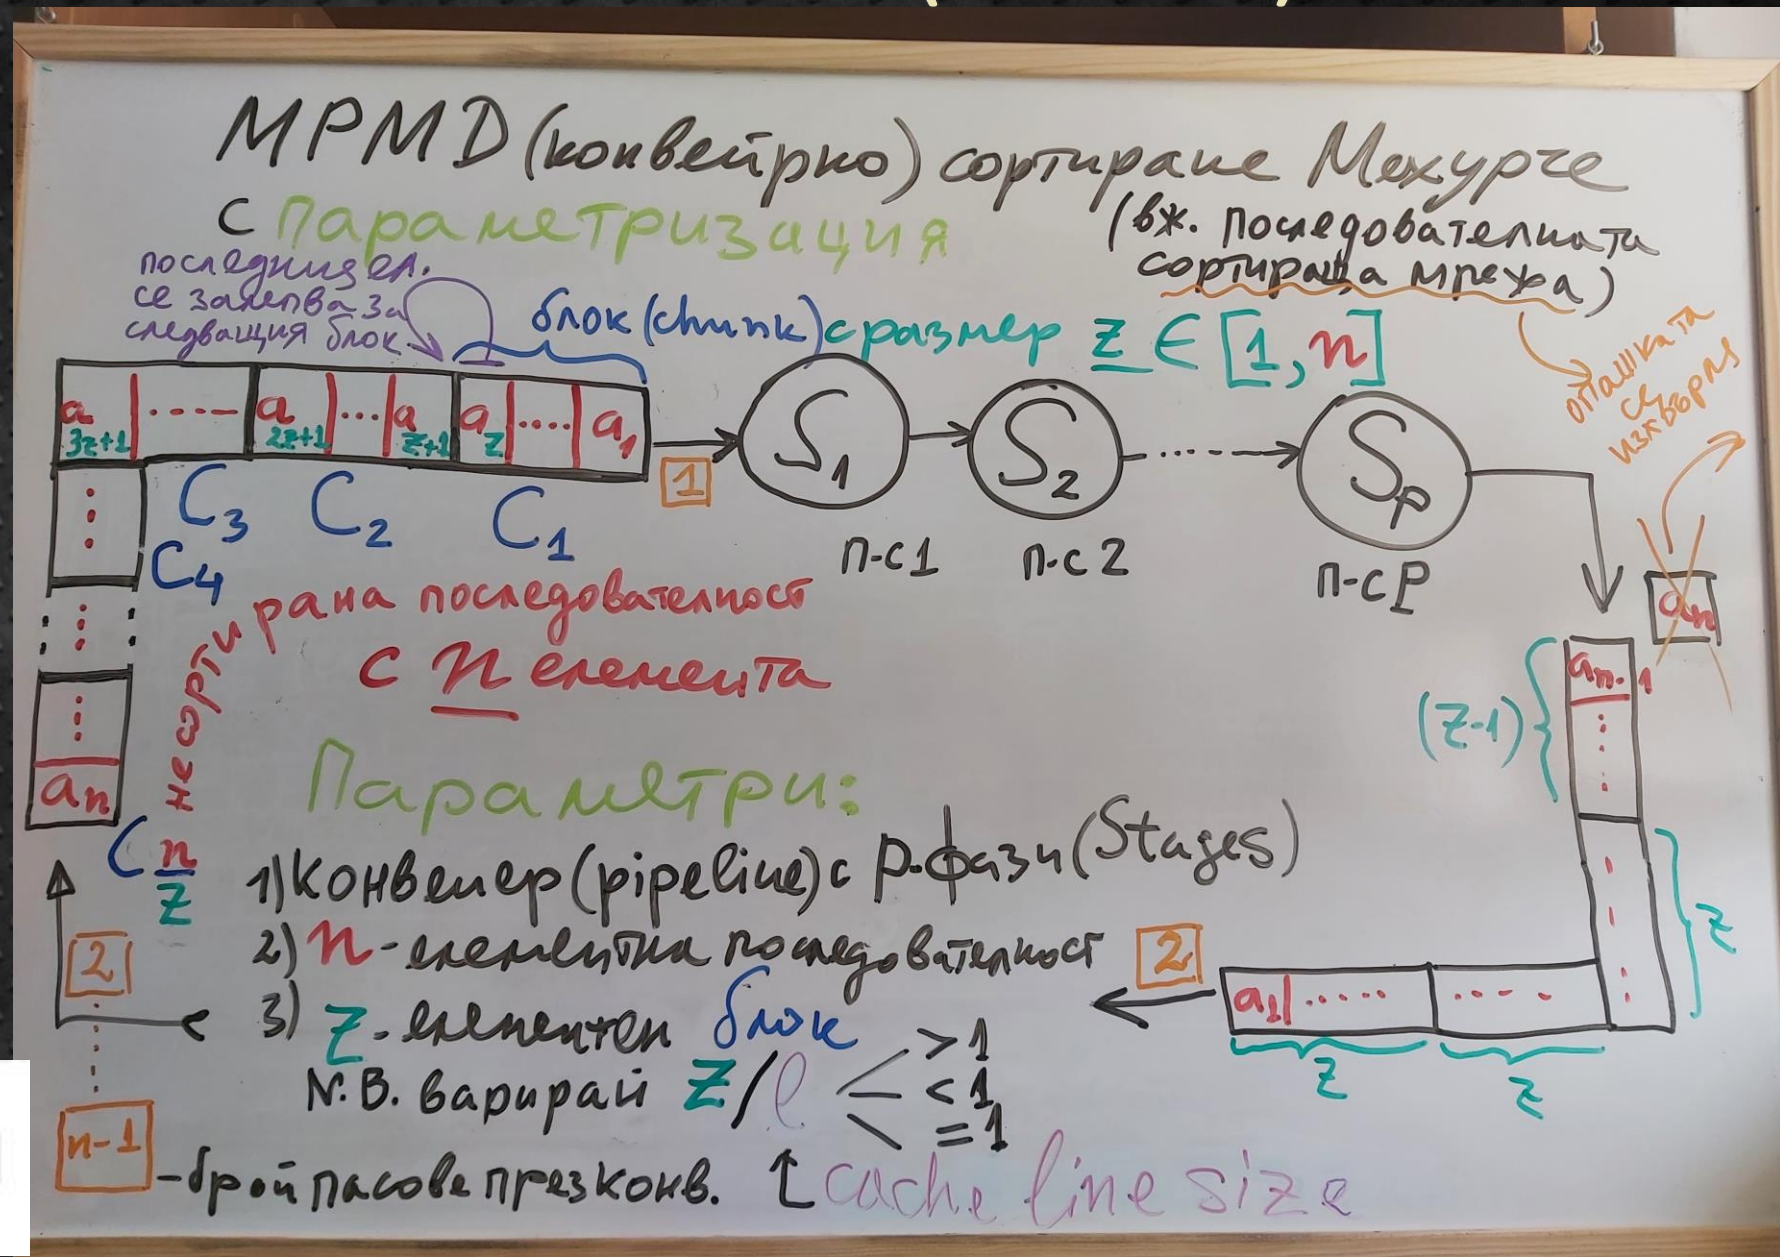 MPMD (конвейрно) сортиране Мехурче
с параметризация
(вж. последователната
сортираща мрежа)
последния ел.
се залепва за
следващия блок
блок (chunk) с размер z ∈ [1, n]
опашката
се
изхвърля
a3z+1 ..... a2z+1 ... az+1 az .... a1
1
S1
S2
Sp
C3
C2
C1
C4
п-с1
п-с2
п-сP
an
несортирана последователност
с n елемента
an-1
(z-1)
z
an
Cn/z
Параметри:
1) Конвейер (pipeline) с p-фази (Stages)
2) n-елементна последователност
3) z-елементен блок
N.B. варирай z/l
> 1
< 1
= 1
2
2
a1 ..... ....
z
z
n-1
- брой пасове през конв.
↑ cache line size